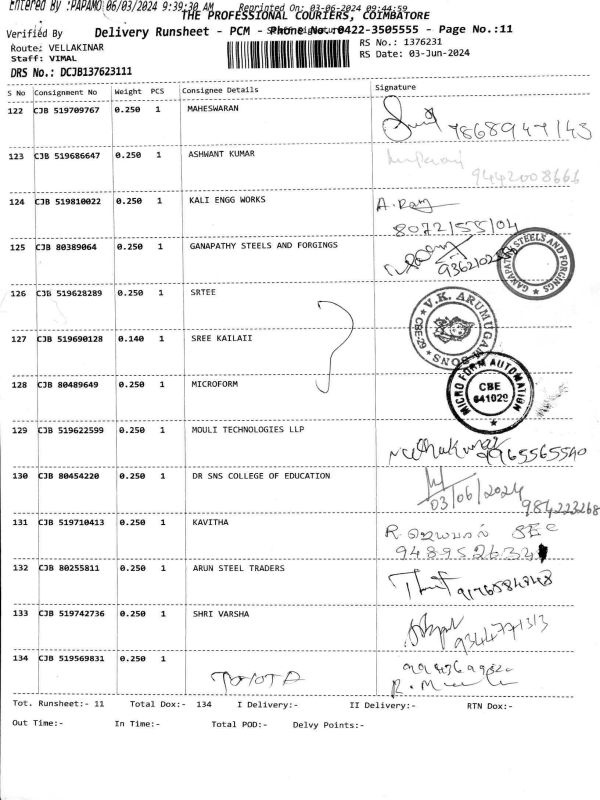 Entered By :PAPAMO 06/03/2024 9:39:30 AM Reprinted On: 03-06-2024 09:44:59
THE PROFESSIONAL COURIERS, COIMBATORE
Verified By Delivery Runsheet - PCM - Phone No.:0422-3505555 - Page No.:11
Route: VELLAKINAR RS No.: 1376231
Staff: VIMAL RS Date: 03-Jun-2024
DRS No.: DCJB137623111
S No Consignment No Weight PCS Consignee Details Signature
122 CJB 519709767 0.250 1 MAHESWARAN 7868947143
123 CJB 519686647 0.250 1 ASHWANT KUMAR 9442008666
124 CJB 519810022 0.250 1 KALI ENGG WORKS A. Ray
8072155104
125 CJB 80389064 0.250 1 GANAPATHY STEELS AND FORGINGS
GANAPATHY STEELS AND FORGINGS
126 CJB 519628289 0.250 1 SRTEE
V.K. ARUMUGAM SONS CBE-29
127 CJB 519690128 0.140 1 SREE KAILAII
128 CJB 80489649 0.250 1 MICROFORM
MICRO FORM AUTOMATION CBE 641029
129 CJB 519622599 0.250 1 MOULI TECHNOLOGIES LLP
9965565540
130 CJB 80454220 0.250 1 DR SNS COLLEGE OF EDUCATION
03/06/2024
984223268
131 CJB 519710413 0.250 1 KAVITHA
132 CJB 80255811 0.250 1 ARUN STEEL TRADERS
133 CJB 519742736 0.250 1 SHRI VARSHA
9344771313
134 CJB 519569831 0.250 1
TOYOTA
Tot. Runsheet:- 11 Total Dox:- 134 I Delivery:- II Delivery:- RTN Dox:-
Out Time:- In Time:- Total POD:- Delvy Points:-